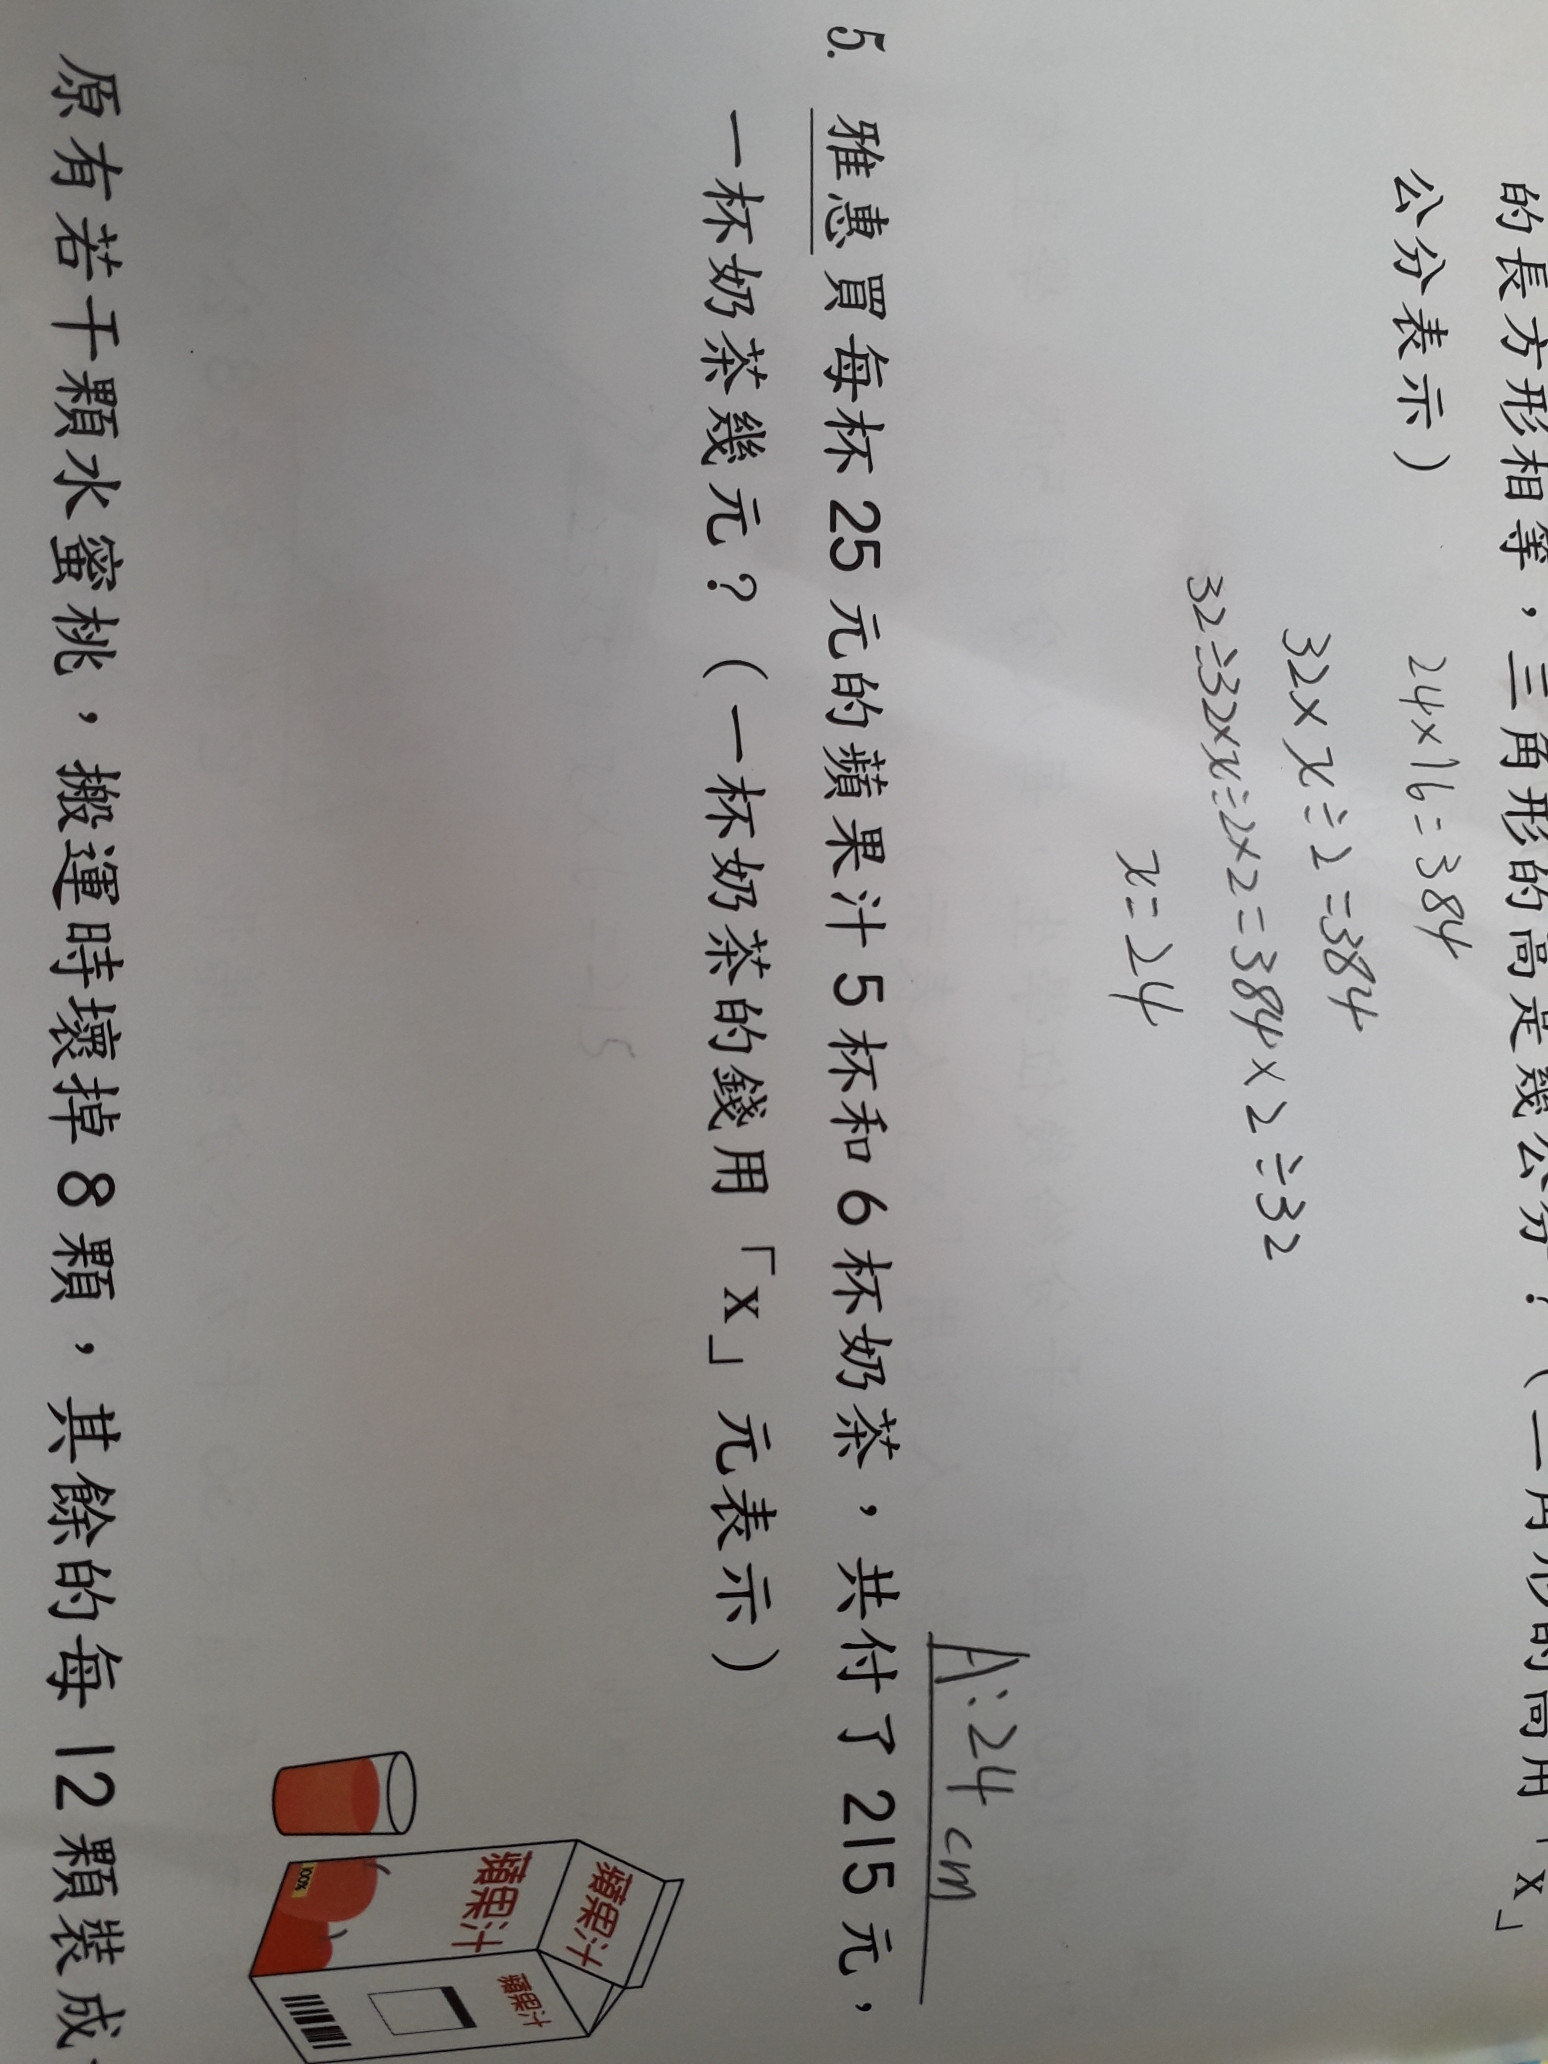 的長方形相等，三角形的高是幾公分？（三角形的高用「x」
公分表示）
24×16=384
32×x÷2=384
32÷32×x÷2×2=384×2÷32
x=24
A:24cm
5. 雅惠買每杯25元的蘋果汁5杯和6杯奶茶，共付了215元，
一杯奶茶幾元？（一杯奶茶的錢用「x」元表示）
蘋果汁
蘋果汁
蘋果汁
100%
原有若干顆水蜜桃，搬運時壞掉8顆，其餘的每12顆裝成